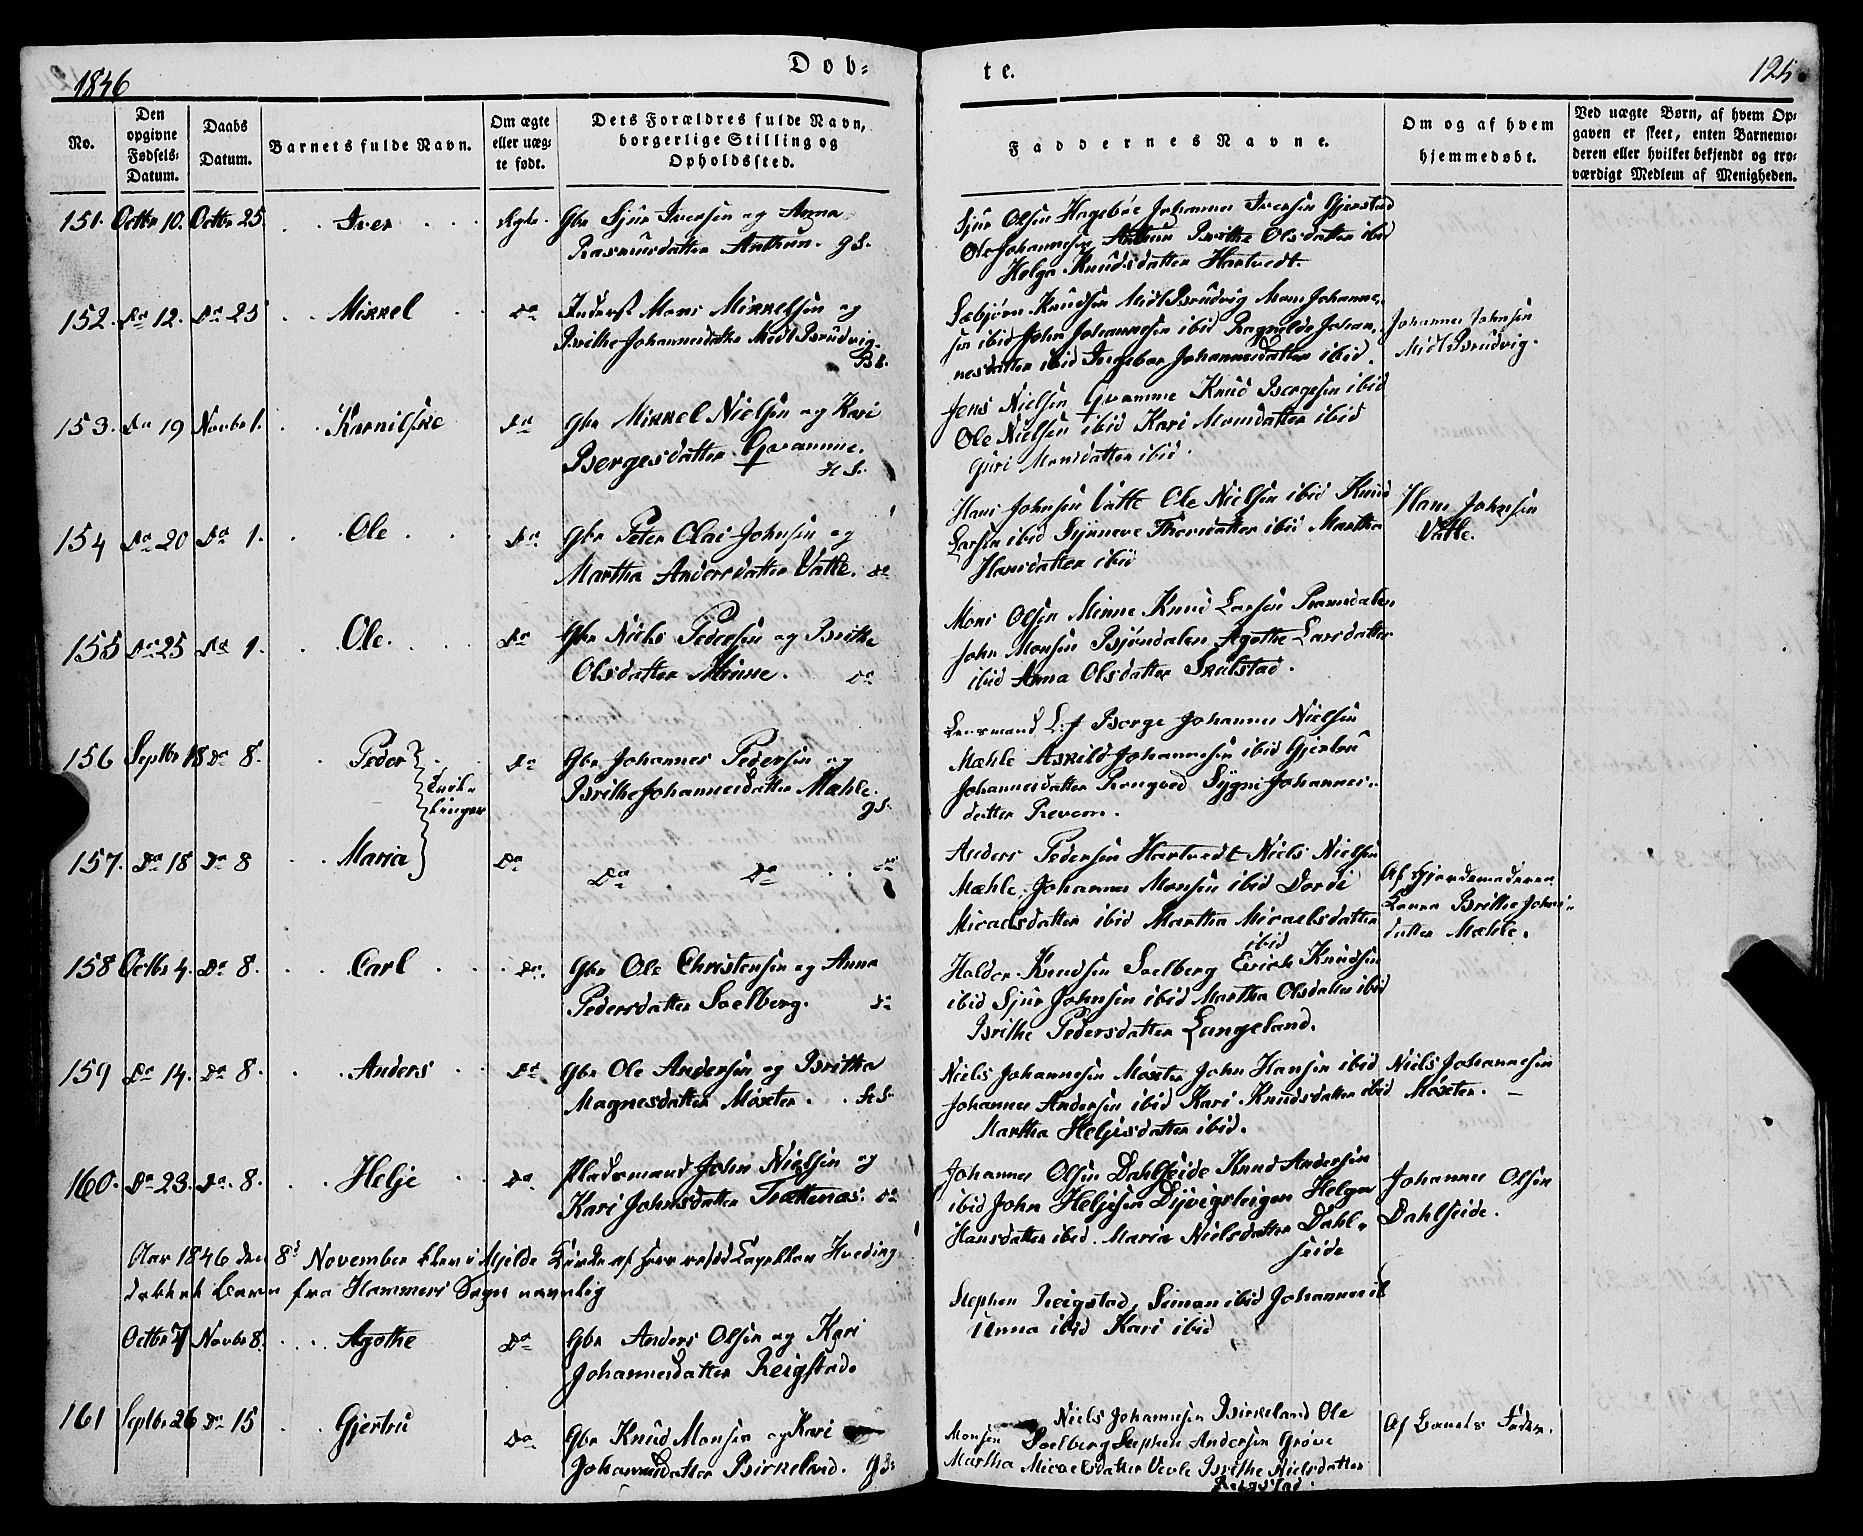 1846
Døb-
te.
125
No.
Den opgivne Fødsels-Datum.
Daabs Datum.
Barnets fulde Navn.
Om ægte eller uæg-te født.
Dets Forældres fulde Navn, borgerlige Stilling og Opholdssted.
Faddernes Navne.
Om og af hvem hjemmedøbt.
Ved uægte Børn, af hvem Op-gaven er skeet, enten Barnemo-deren eller hvilket bekjendt og tro-værdigt Medlem af Menigheden.
151. Octbr 10. Octbr 25. Iver Ægte. Gbr Sjur Iversen og Anna
Rasmusdatter Anthun. G S.
Sjur Olsen Hagebøe Johannes Iversen Gjerstad
Ole Johannesen Anthun Brithe Olsdatter ibid
Helga Knudsdatter Hartvedt.
152. Do 12. Do 25 Mikkel Do Inderst Mons Mikkelsen og
Brithe Johannesdatter Midt Brudvig.
B S.
Sæbjørn Knudsen Midt Brudvig Mons Johanne-
sen ibid John Johannesen ibid Ragnilde Johan-
nesdatter ibid Ingebor Johannesdatter ibid.
Johannes Johnsen
Midt Brudvig.
153. Do 19 Novbr 1. Do Gbr Mikkel Nielsen og Kari
Bergesdatter Qvamme.
H S.
Jens Nielsen Qvamme Knud Bergesen ibid
Ole Nielsen ibid Kari Monsdatter ibid
Guri Monsdatter ibid.
154 Do 20 Do 1. Ole Do Gbr Peter Olai Johnsen og
Martha Andersdatter Vatle. Do
Hans Johnsen Vatle Ole Nielsen ibid Knud
Larsen ibid Synneve ibid Martha
Hansdatter ibid
Hans Johnsen
Vatle.
155 Do 25 Do 1. Ole. Do Gbr Niels Pedersen og Brithe
Olsdatter Minne. Do
Mons Olsen Minne Knud Larsen
John Monsen Bjøndalen Agathe Larsdatter
ibid Anna Olsdatter
156 Septbr 18 Do 8. Peder Do Gbr Johannes Pedersen og
Brithe Johannesdatter Mæhle.
G S.
Tvil-
linger
Lensmand Berge Johannes Nielsen
Mæhle Askild Johannesen ibid Gjertru
Johannesdatter Sygni Johannes-
datter Revem.
157. Do 18 Do 8 Maria Do Do Do Do
Anders Pedersen Hartvedt Niels Nielsen
Mæhle Johannes Monsen ibid Dordi
Micaelsdatter ibid Martha Micaelsdatter
ibid
Af Gjordemoderen
Brithe
datter Mæhle.
158 Octbr 4. Do 8. Carl Do. Gbr Ole Christensen og Anna
Pedersdatter Soelberg. Do
Haldor Knudsen Soelberg Erich Knudsen
ibid Sjur Johnsen ibid Martha Olsdatter ibid
Brithe Pedersdatter Langeland.
159 Do 14. Do 8. Anders Do Gbr Ole Andersen og Britha
Magnesdatter Moxter. H S.
Niels Johannesen Moxter John Hansen ibid
Johannes Andersen ibid Kari Knudsdatter ibid
Martha Heljesdatter ibid.
Niels Johannesen
Moxter.
160. Do 23. Do. 8. Helje Do Pladsmand John Nielsen og
Kari Johnsdatter Trættenæs. Do
Johannes Olsen Dahlseide Knud Andersen
ibid John Heljesen Helga
Hansdatter ibid. Maria Nielsdatter Dahl-
seide
Johannes Olsen
Dahlseide.
Aar 1846 den 8de November blev i Hjelde Kirke af Herr resid Capellan Hveding
døbt et Barn fra Hammers Sogn navnlig
Octbr 7 Novbr 8. Agathe Do Gbr Anders Olsen og Kari
Johannesdatter Reigstad.
Stephen Reigstad, Simon ibid Johannes ib
Anna ibid Kari ibid
161 Septbr 26 Do 15 Gjertru Do Gbr Knud Monsen og Kari
Johannesdatter Birkeland. G S.
Niels Johannesen Birkeland Ole
Monsen Soelberg Stephen Andersen Grøve
Martha Micaelsdatter Brithe Nielsdatter
Reigstad.
Af Barnets Fader.